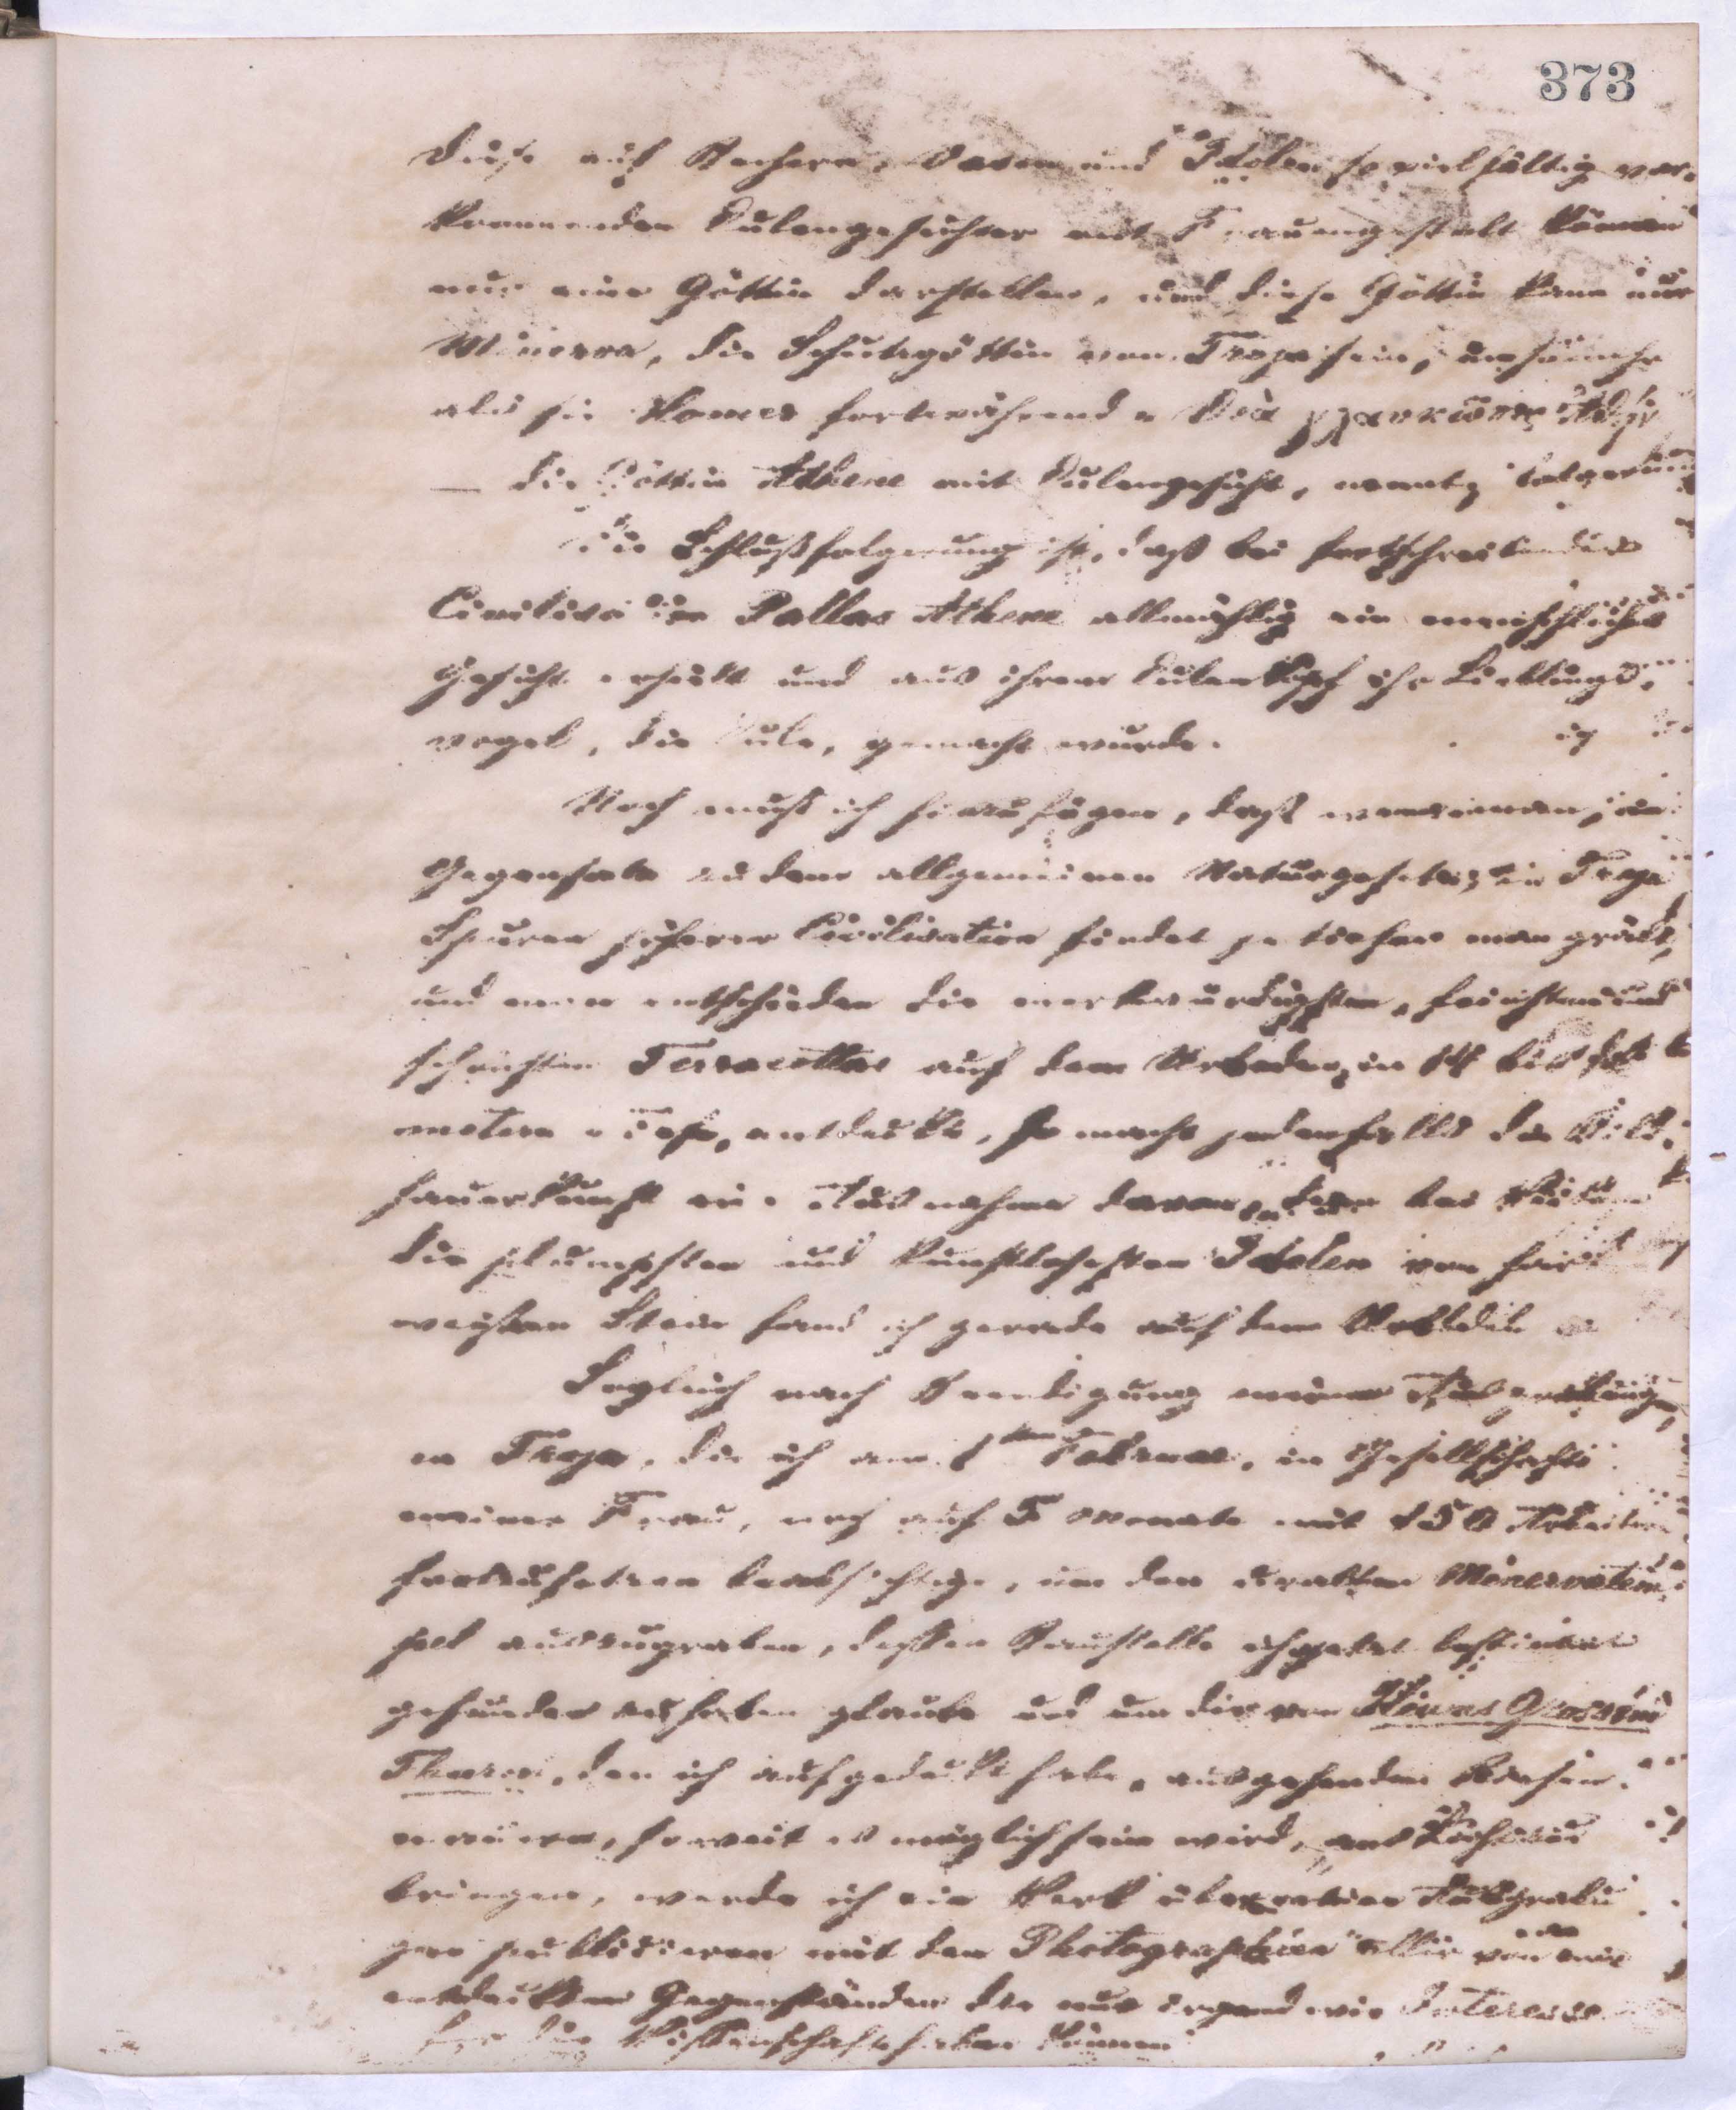 373
diese auf Bechern, Vasen und Idolen so vielfältig vor-
kommenden Eulengesichter mit Frauengestalt können
nur eine Göttin darstellen, und diese Göttin kann nur
Minerva, die Schutzgöttin von Troja sein, umsomehr
als sie Homer fortwährend „θεὰ γλαυκῶπις Ἀθήν
— die Göttin Athene mit Eulengesicht, nennt;
die Schlußfolgerung ist, daß bei fortschreitender
Civilisation Pallas Athene allmählig ein menschliches
Gesicht erhielt und aus ihrem Eulenkopf ihr Lieblings-
vogel, die Eule, gemacht wurde.
Noch muß ich hinzufügen, daß wenn man, im
Gegensatz zu dem allgemeinen Naturgesetz, in Troja
Spuren höherer Civilisation findet je tiefer man gräbt,
und man entschieden die merkwürdigsten, feinsten und
schönsten Terracottas auf dem Urboden, in 14 bis
metern Tiefe, entdeckt, so macht jedenfalls die Bild-
hauerkunst eine Ausnahme davon, denn bei
die plumpsten und kunstlosesten Idolen von
weißem Stein fand ich gerade auf dem Urboden
Sogleich nach Beendigung meiner Ausgrabungen
in Troja, die ich am 1ten Februar, in Gesellschaft
meiner Frau, noch auf 5 Monate mit 150 Arbeitern
fortzusetzen beabsichtige, um den uralten Minervatem-
pel auszugraben, dessen Baustelle ich jetzt bestimmt
gefunden zu haben glaube und um die von Iliums Grossem
Thurm, den ich aufgedeckt habe, ausgehenden
mauern, soweit es möglich sein wird, ans Licht zu
bringen, werde ich ein Werk über meine Ausgrabun
gen publiciren mit den Photographien aller von mir
entdeckten Gegenständen die nur irgendwie Interesse
für die Wissenschaft haben können